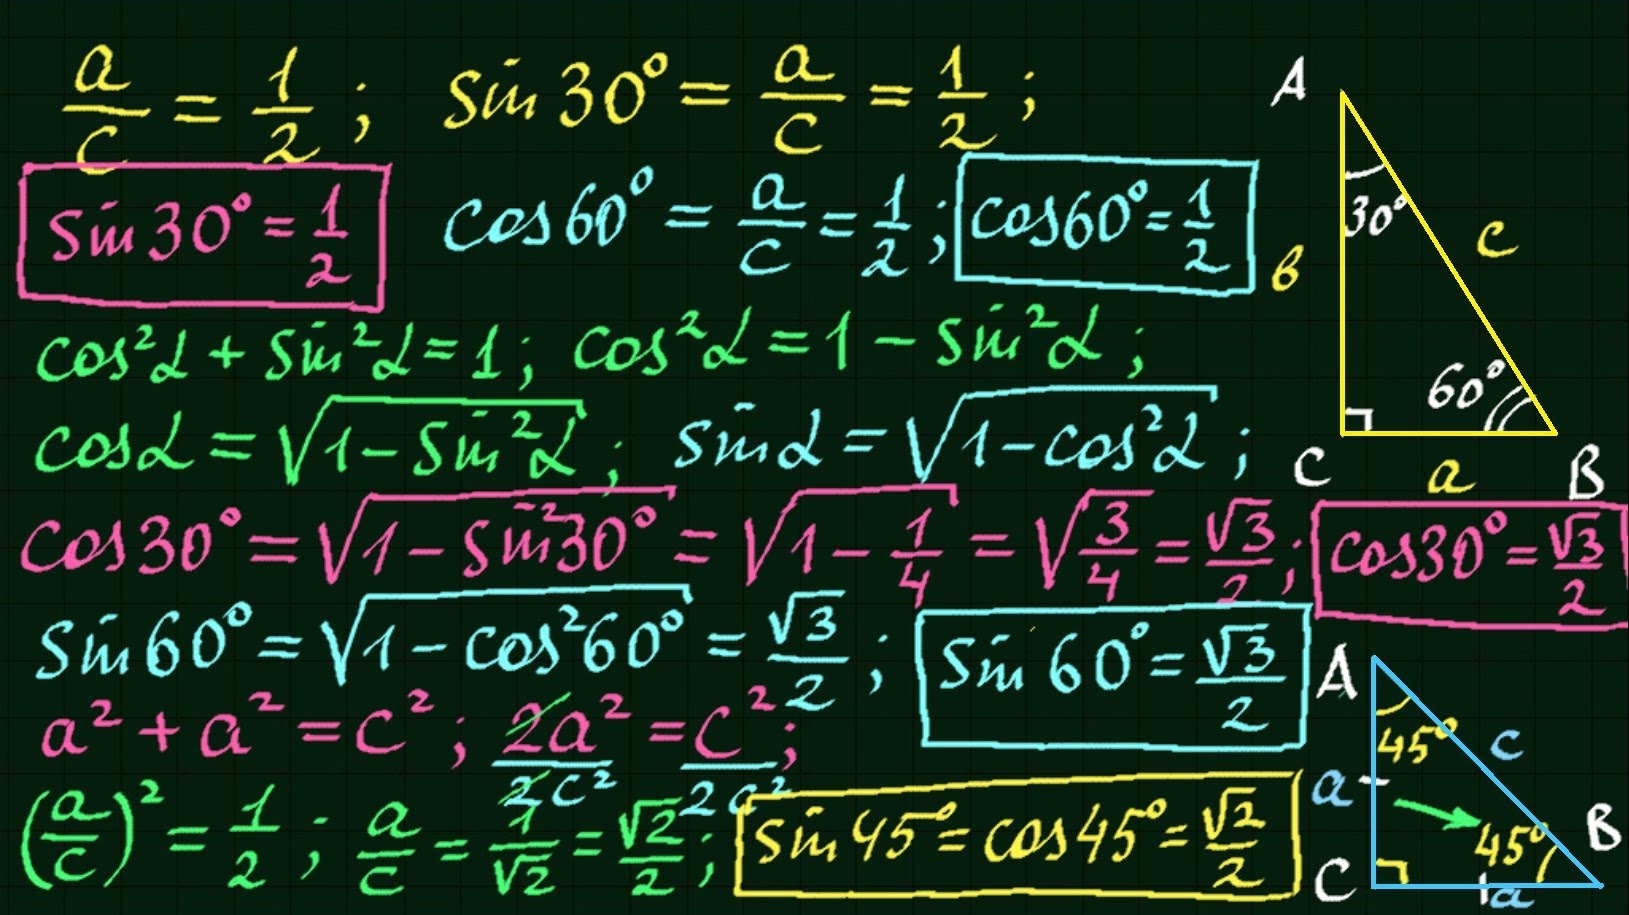 a/c = 1/2 ; sin30° = a/c = 1/2 ;
sin30° = 1/2 cos60° = a/c = 1/2 ; cos60° = 1/2
cos²α + sin²α = 1 ; cos²α = 1 − sin²α ;
cosα = √(1 − sin²α) ; sinα = √(1 − cos²α) ;
cos30° = √(1 − sin²30°) = √(1 − 1/4) = √(3/4) = √3/2 ; cos30° = √3/2
sin60° = √(1 − cos²60°) = √3/2 ; sin60° = √3/2
a² + a² = c² ; 2a²/2c² = c²/2c² ;
(a/c)² = 1/2 ; a/c = 1/√2 = √2/2 ; sin45° = cos45° = √2/2
A
30°
c
в
60°
C a B
A
45° c
a
45° B
C a